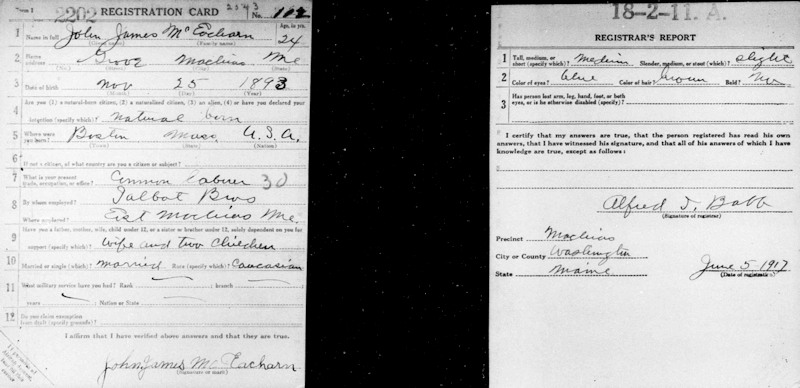 Form 1 2202 REGISTRATION CARD No. 102
1 Name in full John James McEacharn Age, in yrs. 24
(Given name) (Family name)
2 Home address Grove Machias Me
(No.) (Street) (City) (State)
3 Date of birth Nov 25 1893
(Month) (Day) (Year)
4 Are you (1) a natural-born citizen, (2) a naturalized citizen, (3) an alien, (4) or have you declared your
intention (specify which)? natural born
5 Where were you born? Boston Mass U.S.A.
(Town) (State) (Nation)
6 If not a citizen, of what country are you a citizen or subject?
7 What is your present trade, occupation, or office? Common Laborer 30
8 By whom employed? Talbot Bros
Where employed? East Machias Me.
9 Have you a father, mother, wife, child under 12, or a sister or brother under 12, solely dependent on you for
support (specify which)? Wife and two Children
10 Married or single (which)? Married Race (specify which)? Caucasian
11 What military service have you had? Rank branch
years Nation or State
12 Do you claim exemption from draft (specify grounds)?
I affirm that I have verified above answers and that they are true.
John James McEacharn
(Signature or mark)
18-2-11. A.
REGISTRAR'S REPORT
1 Tall, medium, or short (specify which)? Medium Slender, medium, or stout (which)? Slight
2 Color of eyes? blue Color of hair? brown Bald? No
3 Has person lost arm, leg, hand, foot, or both eyes, or is he otherwise disabled (specify)?
I certify that my answers are true, that the person registered has read his own
answers, that I have witnessed his signature, and that all of his answers of which I have
knowledge are true, except as follows:
Alfred T. Babb
(Signature of registrar)
Precinct Machias
City or County Washington
State Maine June 5, 1917
(Date of registration)